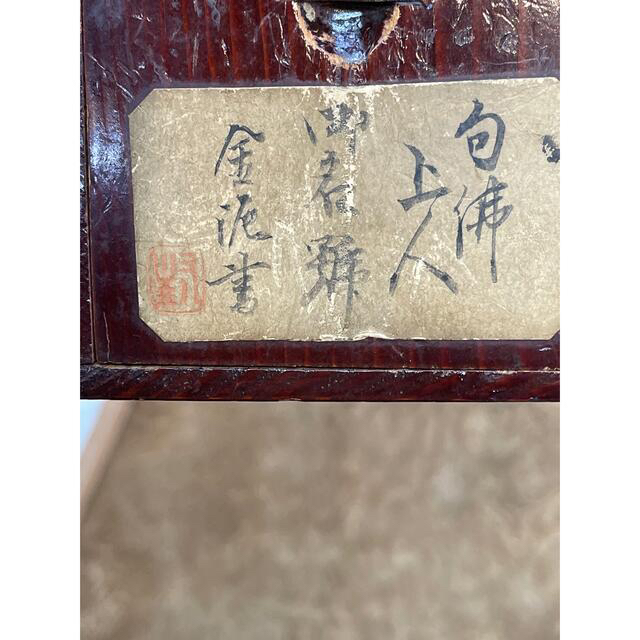 句佛
上人
御名號
金泥書